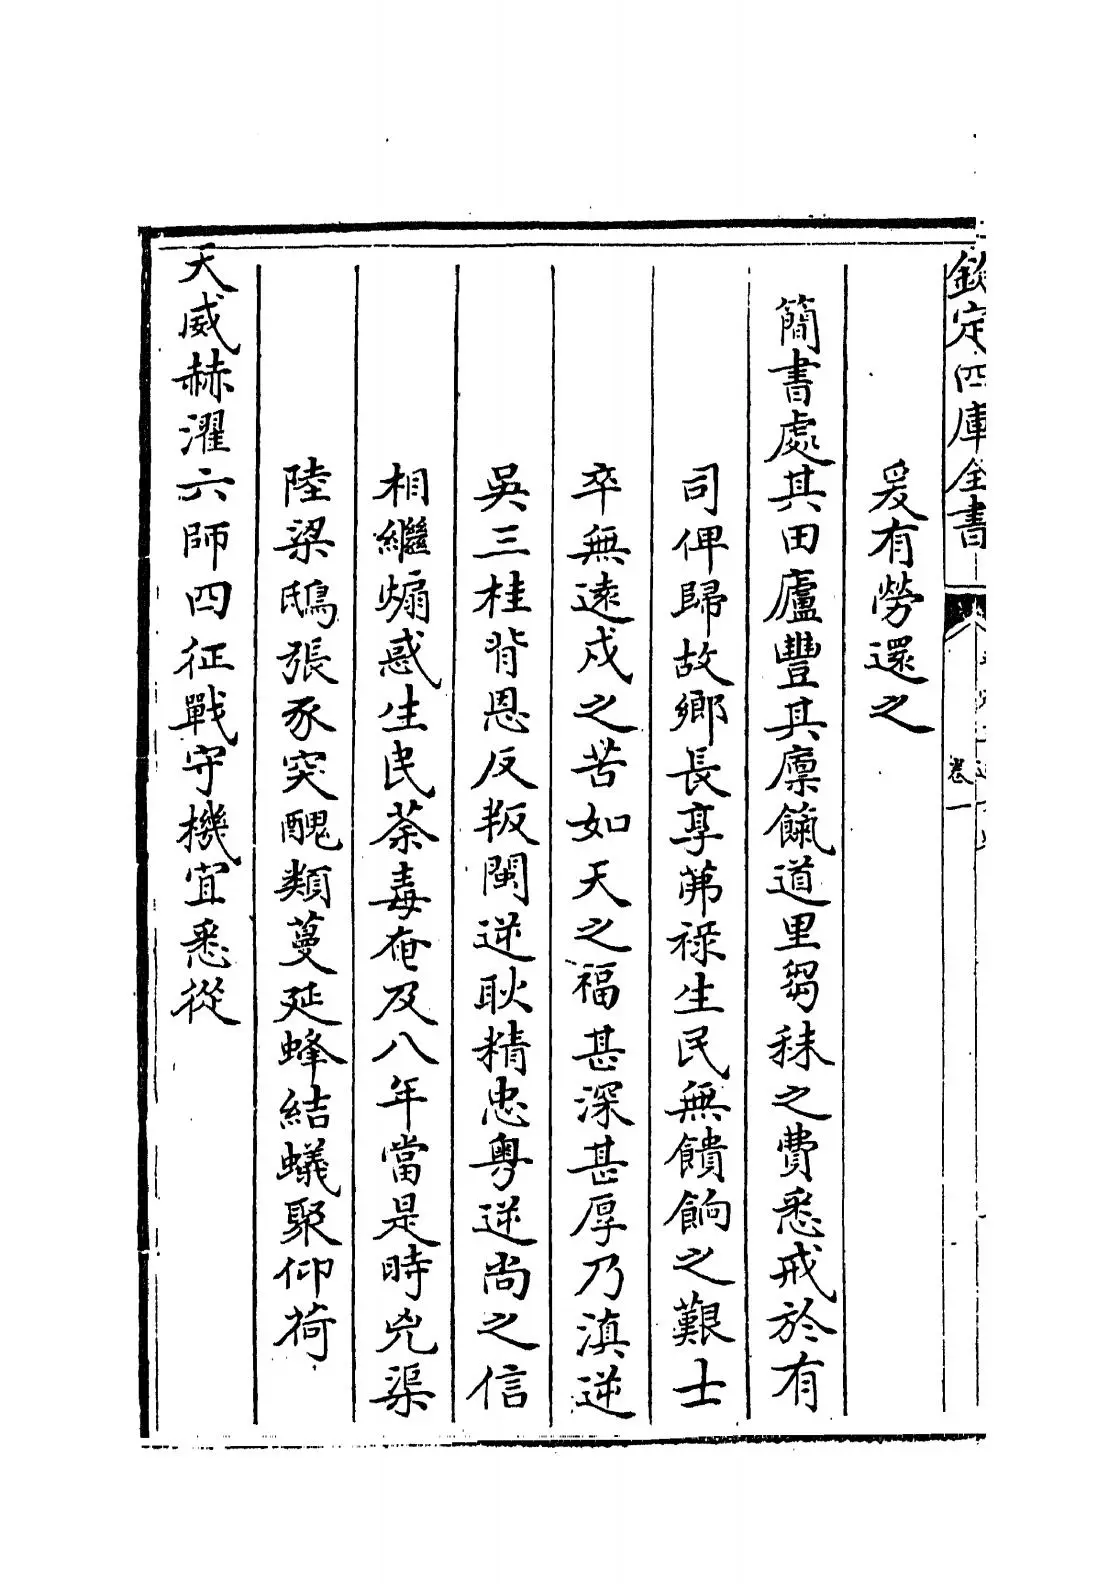 欽定四庫全書
卷一
爰有勞還之
簡書處其田廬豐其廪餼道里芻秣之費悉戒於有
司俾歸故鄉長享茀祿生民無饋餉之艱士
卒無遠戍之苦如天之福甚深甚厚乃滇逆
吳三桂背恩反叛閩逆耿精忠粤逆尚之信
相繼煽惑生民荼毒奄及八年當是時兇渠
陸梁鴟張豕突醜類蔓延蜂結蟻聚仰荷
天威赫濯六師四征戰守機宜悉從